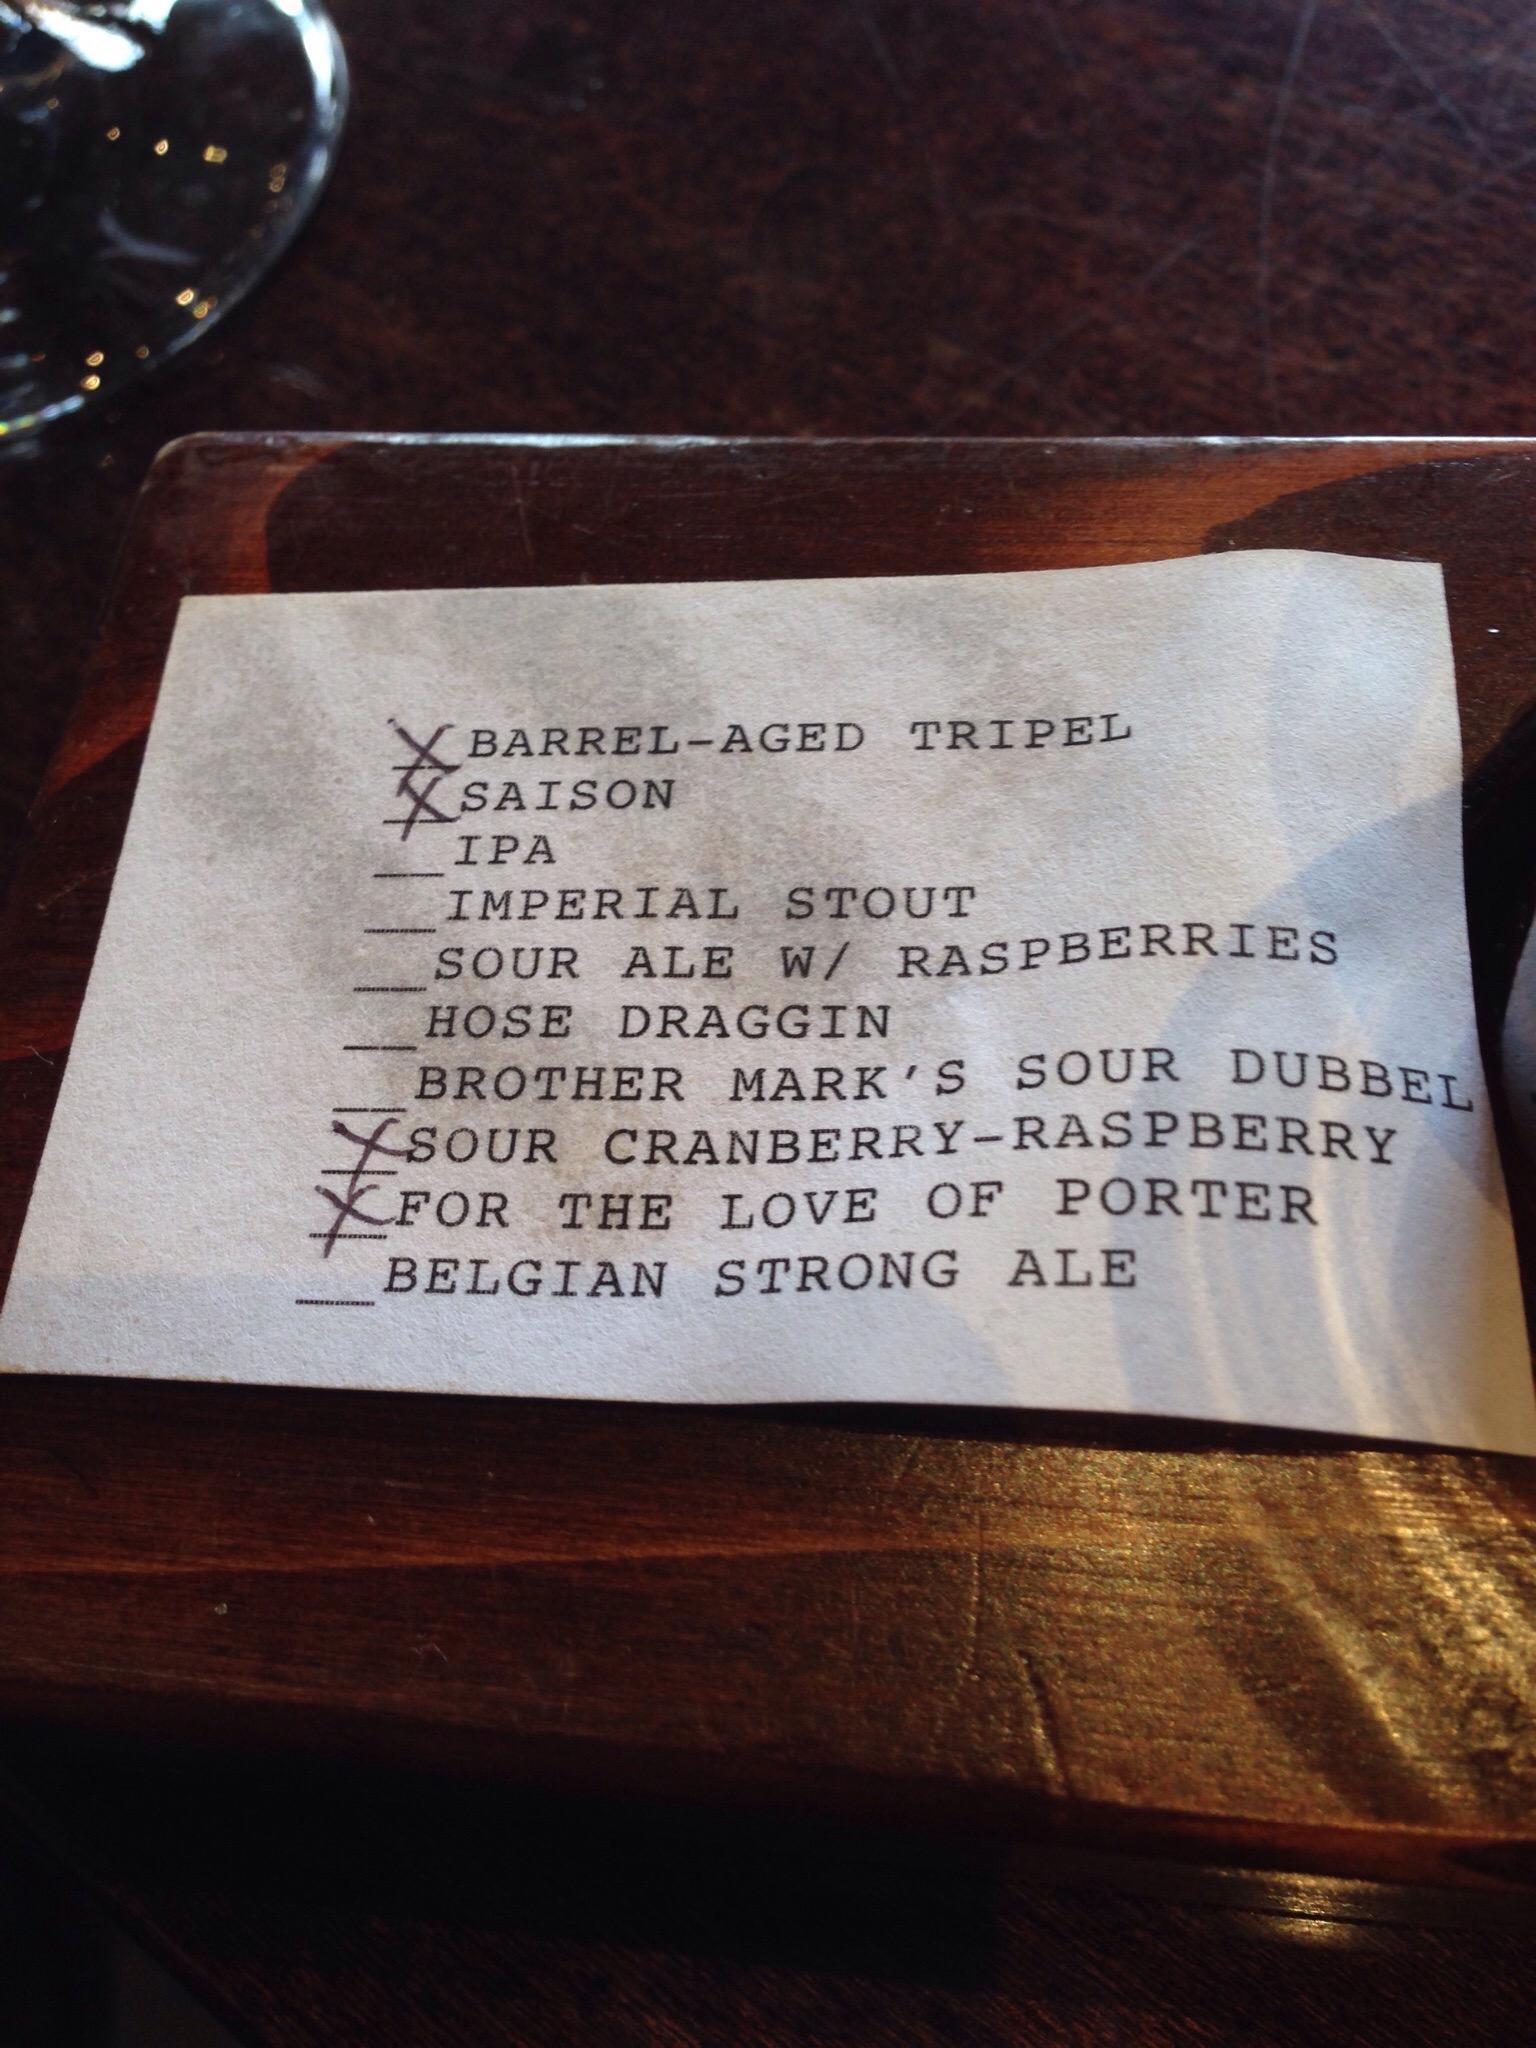 X BARREL-AGED TRIPEL
X SAISON
__ IPA
__ IMPERIAL STOUT
__ SOUR ALE W/ RASPBERRIES
__ HOSE DRAGGIN
__ BROTHER MARK'S SOUR DUBBEL
X SOUR CRANBERRY-RASPBERRY
X FOR THE LOVE OF PORTER
__ BELGIAN STRONG ALE